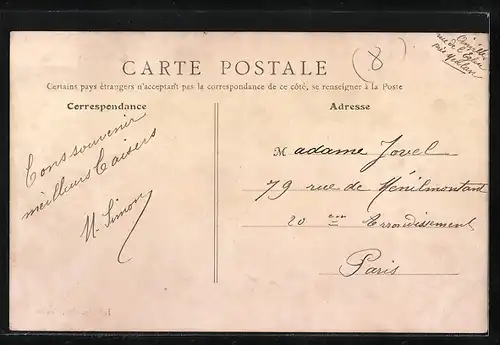 (8)
rue de l'Eglise
CARTE POSTALE
Certains pays étrangers n'acceptant pas la correspondance de ce côté, se renseigner à la Poste
Correspondance
Bons souvenir
meilleurs baisers
M. Simon
Adresse
Madame Jovel
79 rue de Ménilmontant
20 em Arrondissement
Paris